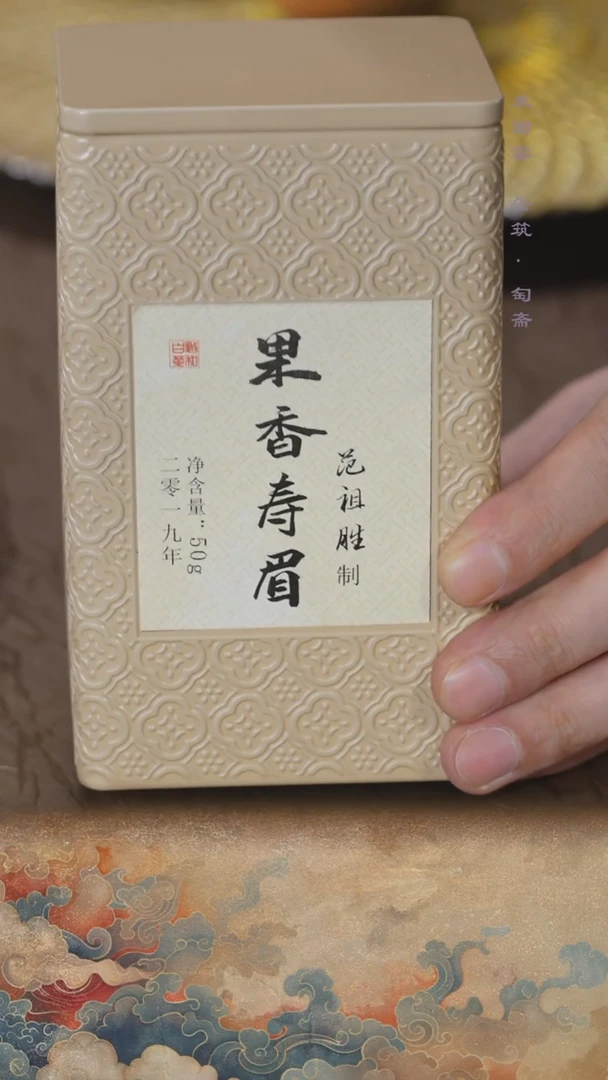 筑·匋斋
范祖胜制
果香寿眉
净含量:50g
二零一九年